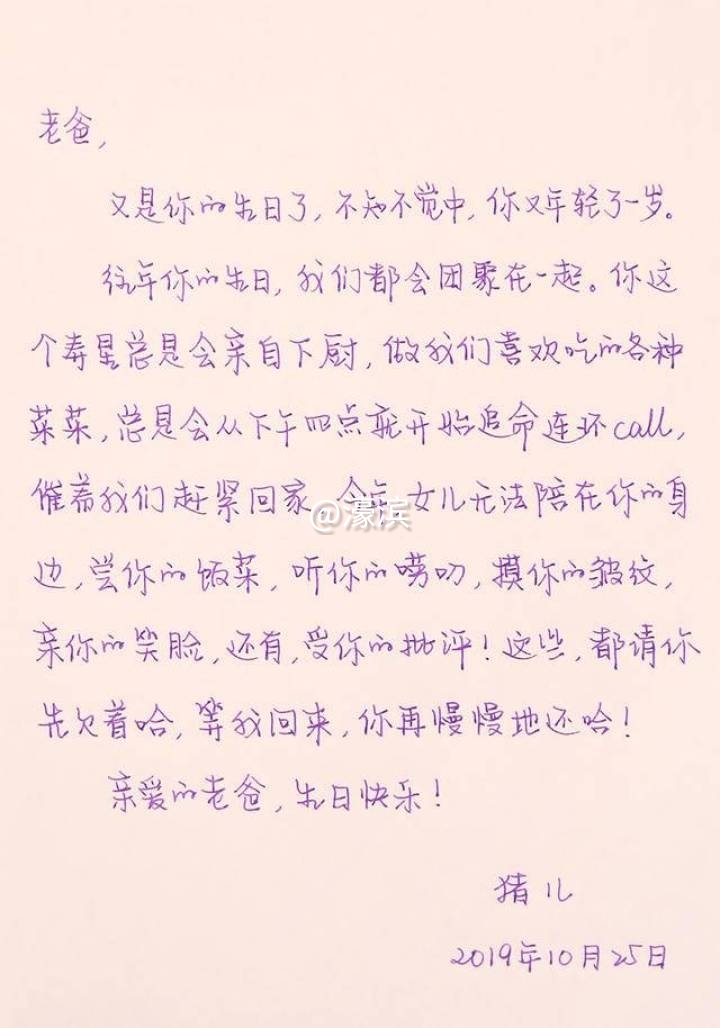 老爸,
又是你的生日了,不知不觉中,你又年轻了一岁。
往年你的生日,我们都会团聚在一起。你这
个寿星总是会亲自下厨,做我们喜欢吃的各种
菜菜,总是会从下午四点就开始追命连环call,
催着我们赶紧回家。今年,女儿无法陪在你的身
@濠滨
边,尝你的饭菜,听你的唠叨,摸你的皱纹,
亲你的笑脸,还有,受你的批评!这些,都请你
先欠着哈,等我回来,你再慢慢地还哈!
亲爱的老爸,生日快乐!
猪儿
2019年10月25日